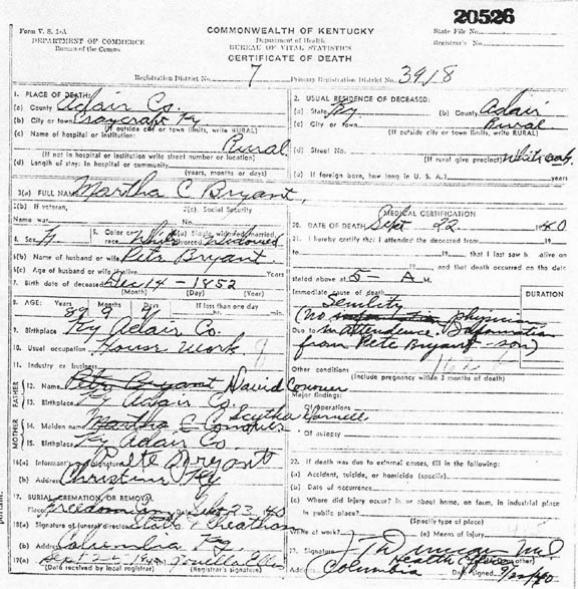 20526
Form V. S. 1-A
DEPARTMENT OF COMMERCE
Bureau of the Census
COMMONWEALTH OF KENTUCKY
Department of Health
BUREAU OF VITAL STATISTICS
CERTIFICATE OF DEATH
State File No.
Registrar's No.
Registration District No. 7 Primary Registration District No. 3918
1. PLACE OF DEATH:
(a) County Adair Co.
(b) City or town Craycraft Ky
(If outside city or town limits, write RURAL)
(c) Name of hospital or institution:
Rural
(If not in hospital or institution write street number or location)
(d) Length of stay: In hospital or community
(years, months or days)
2. USUAL RESIDENCE OF DECEASED:
(a) State Ky (b) County Adair
(c) City or town Rural
(If outside city or town limits, write RURAL)
(d) Street No.
(If rural give precinct) White Oak
(e) If foreign born, how long in U. S. A.? years
3(a) FULL NAME Martha C Bryant
3(b) If veteran,
Name war
3(c) Social Security
No.
4. Sex F 5. Color or race White 6(a) Single, widowed, married, Widowed
6(b) Name of husband or wife Pete Bryant
6(c) Age of husband or wife if alive Years
7. Birth date of deceased Dec 14 - 1852
(Month) (Day) (Year)
8. AGE: Years Months Days If less than one day
hr. min.
9. Birthplace Ky Adair Co.
10. Usual occupation House Work
11. Industry or business
FATHER
12. Name Pete Bryant David Conover
13. Birthplace Ky Adair Co.
MOTHER
14. Maiden name Martha C Conover
15. Birthplace Ky Adair Co.
16(a) Informant's signature Pete Bryant
(b) Address Christine Ky
17. BURIAL, CREMATION, OR REMOVAL
Place Freedom Sept 23, 40
18(a) Signature of funeral director
(b) Address Columbia Ky.
19(a)
(Date received by local registrar) (Registrar's signature)
MEDICAL CERTIFICATION
20. DATE OF DEATH Sept 22 1940
21. I hereby certify that I attended the deceased from 19
to 19 that I last saw h alive on
19 and that death occurred on the date
stated above at 5 - A M.
DURATION
Immediate cause of death
Senility
(No physician
Due to in attendance. Information
from Pete Bryant - son)
Other conditions
(Include pregnancy within 3 months of death)
Major findings:
Of operations
Of autopsy
22. If death was due to external causes, fill in the following:
(a) Accident, suicide, or homicide (specify)
(b) Date of occurrence
(c) Where did injury occur? In or about home, on farm, in industrial place
In public place?
(Specify type of place)
While at work? (e) Means of injury
23. Signature M.D.
Health Officer
Address Columbia Date signed